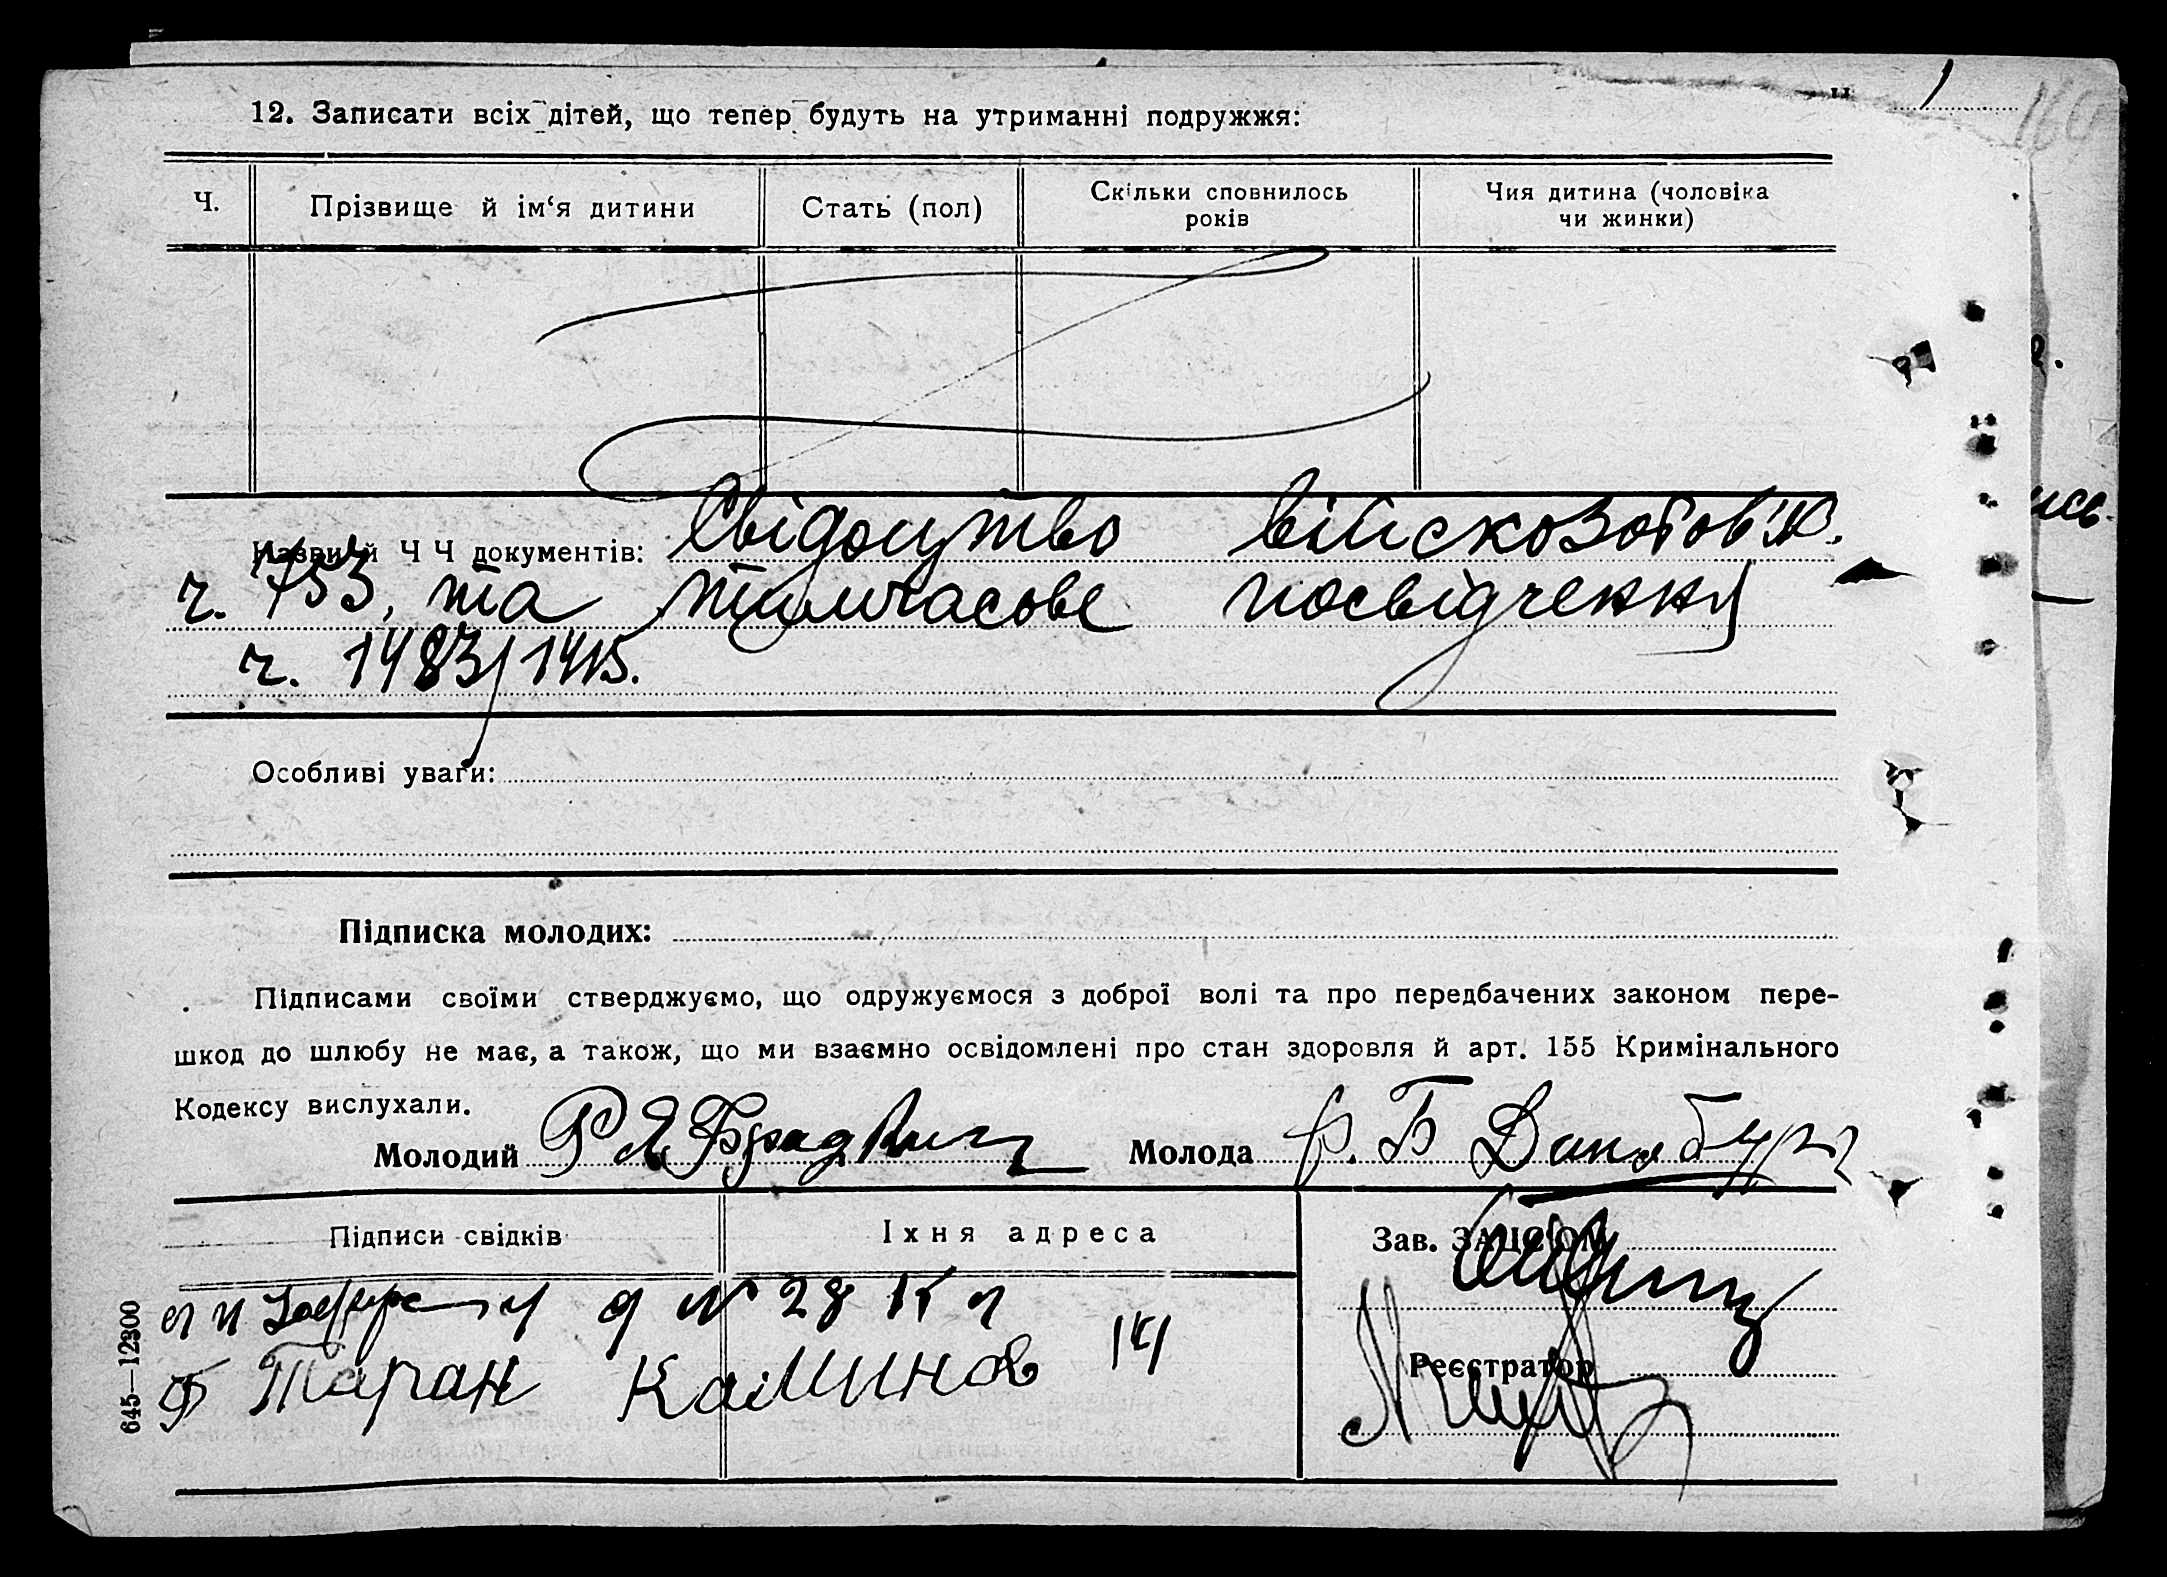 12. Записати всіх дітей, що тепер будуть на утриманні подружжя:
Ч.
Прізвище й ім‘я дитини
Стать (пол)
Скільки сповнилось
років
Чия дитина (чоловіка
чи жинки)
Назви й Ч Ч документів: Свідоцтво військовозобов'яз.
ч. 753, та тимчасове посвідчення
ч. 1483/1415.
Особливі уваги:
Підписка молодих:
Підписами своїми стверджуємо, що одружуємося з доброї волі та про передбачених законом пере-
шкод до шлюбу не має, а також, що ми взаємно освідомлені про стан здоровля й арт. 155 Кримінального
Кодексу вислухали.
Молодий
Молода
Підписи свідків
Їхня адреса
Зав. ЗАЦС'ОМ
№ 28
Таран Калинов 14
Реєстратор
645—12300